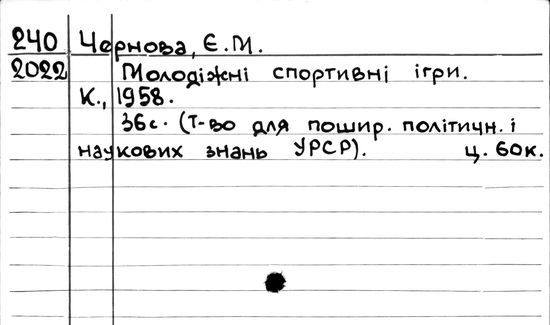 240 Чернова, Є.М.
2022 Молодіжні спортивні ігри.
К., 1958.
36с. (Т-во для пошир. політичн. і
наукових знань УРСР). ц. 60к.